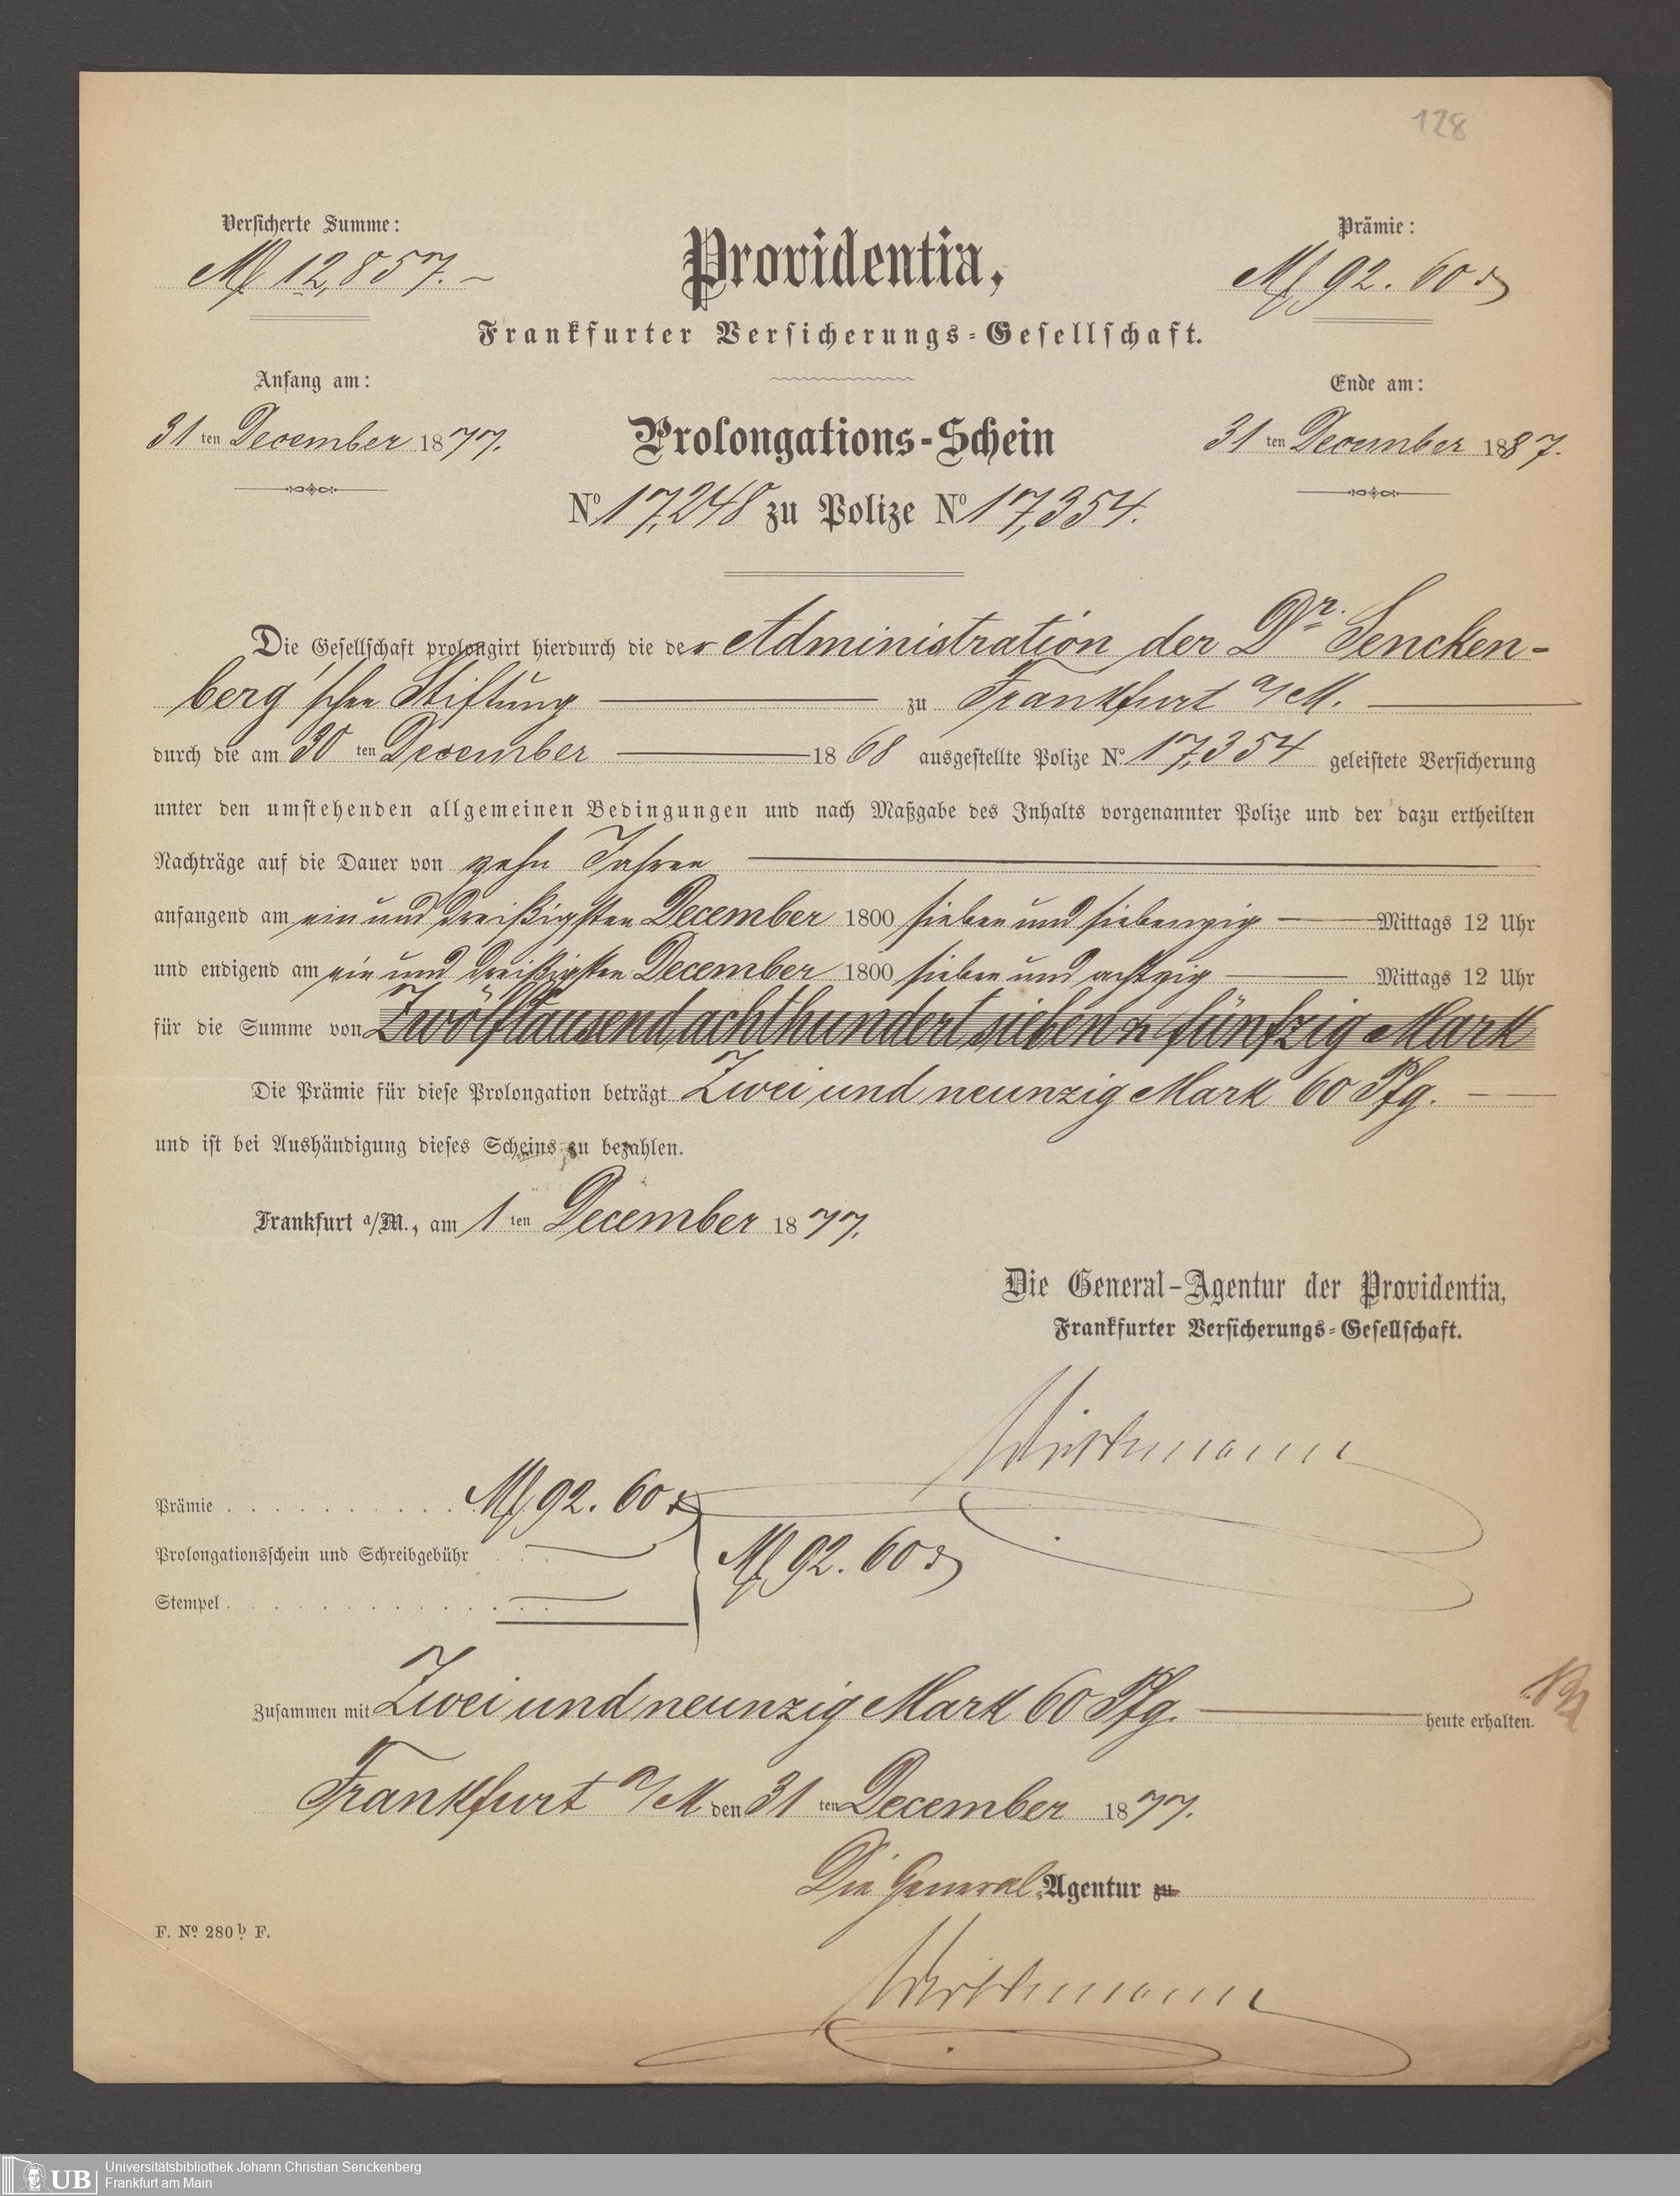 128
Versicherte Summe:
M 12,857.–
Prämie:
M 92. 60 ₰
Providentia,
Frankfurter Versicherungs-Gesellschaft.
Anfang am:
31 ten December 1877.
Ende am:
31 ten December 1887.
Prolongations-Schein
No 17,248 zu Polize No 17,354.
Die Gesellschaft prolongirt hierdurch die der Administration der Dr. Sencken-
berg'schen Stiftung zu Frankfurt a/M.
durch die am 30 ten December 1868 ausgestellte Polize No. 17,354 geleistete Versicherung
unter den umstehenden allgemeinen Bedingungen und nach Maßgabe des Inhalts vorgenannter Polize und der dazu ertheilten
Nachträge auf die Dauer von zehn Jahren
anfangend am ein und dreißigsten December 1800 sieben und siebenzig Mittags 12 Uhr
und endigend am ein und dreißigsten December 1800 sieben und achtzig Mittags 12 Uhr
für die Summe von Zwölftausend achthundert sieben u fünfzig Mark
Die Prämie für diese Prolongation beträgt Zwei und neunzig Mark 60 Pfg.
und ist bei Aushändigung dieses Scheins zu bezahlen.
Frankfurt a/M., am 1 ten December 1877.
Die General-Agentur der Providentia,
Frankfurter Versicherungs-Gesellschaft.
Prämie . . . . . . . . . . M 92. 60 ₰
Prolongationsschein und Schreibgebühr . . .
M 92. 60 ₰
Stempel . . . . . . . . . . . . . .
Zusammen mit Zwei und neunzig Mark 60 Pfg. heute erhalten.
Frankfurt a/M den 31 ten December 1877.
Die General-Agentur zu
F. No. 280 b. F.
UB
Universitätsbibliothek Johann Christian Senckenberg
Frankfurt am Main